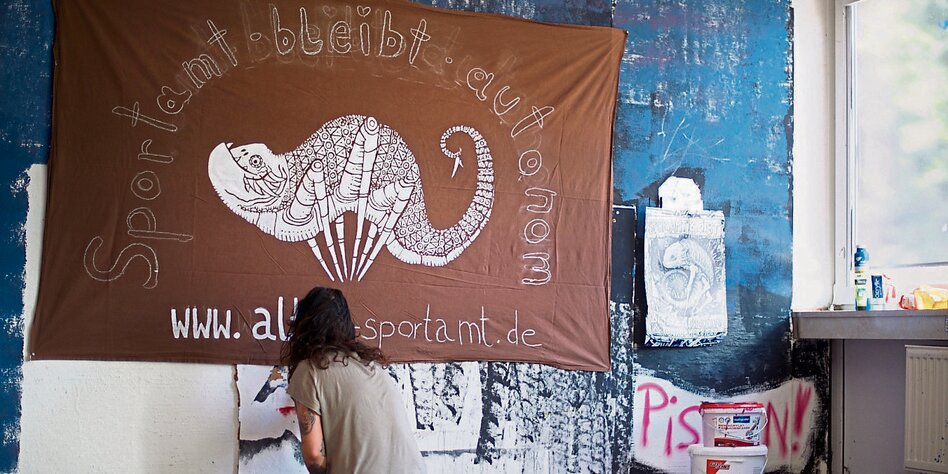 Sportamt . bleibt . autonom
www. al -sportamt.de
Pis !